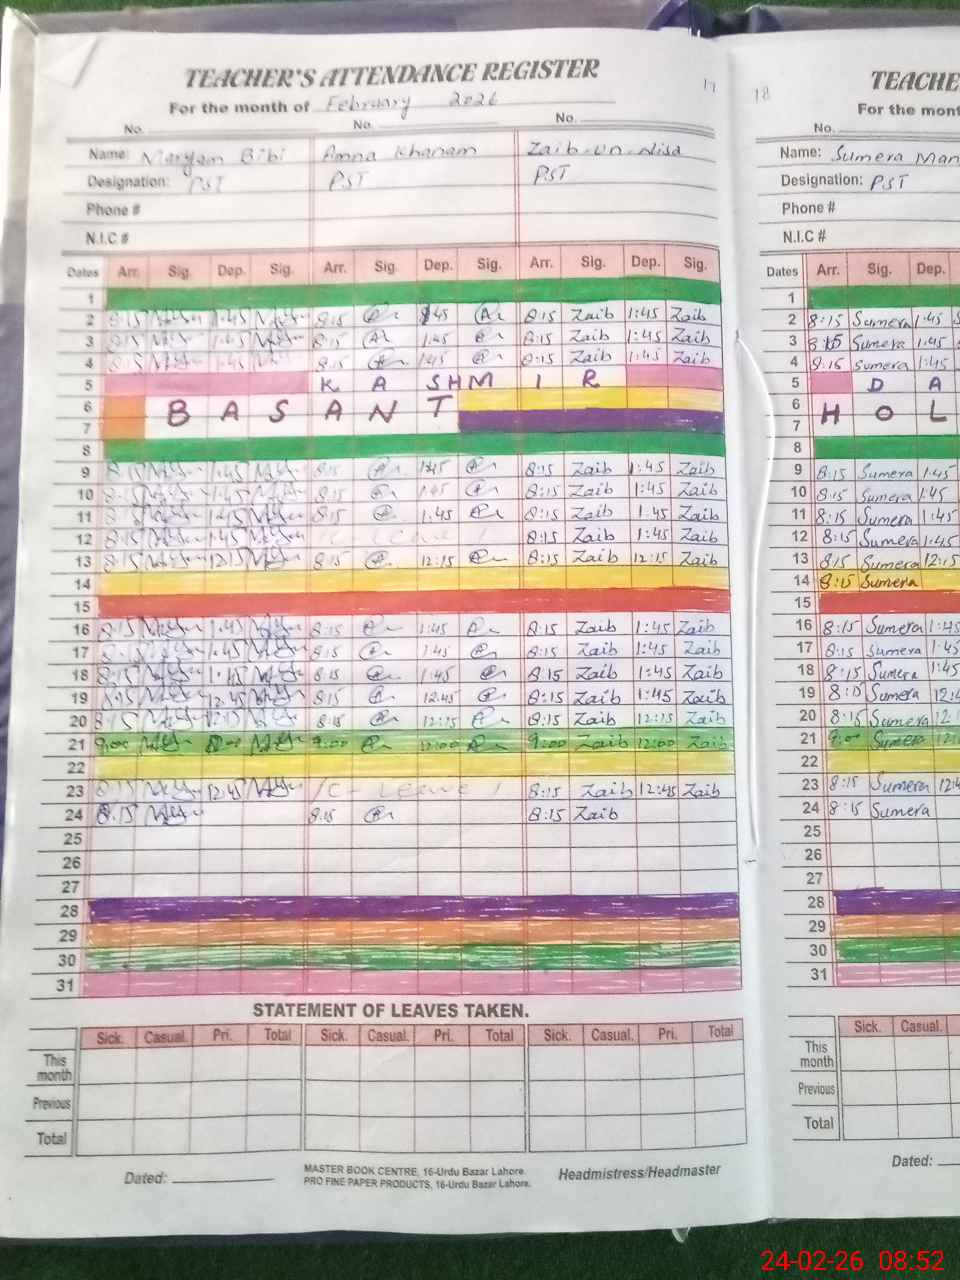 TEACHER'S ATTENDANCE REGISTER
For the month of February 2026
17
No. No. No.
Name: Maryam Bibi Amna Khanam Zaib-un-Nisa
Designation: PST PST PST
Phone #
N.I.C #
Dates Arr. Sig. Dep. Sig. Arr. Sig. Dep. Sig. Arr. Sig. Dep. Sig.
1
2 8:15 1:45 8:15 1:45 8:15 Zaib 1:45 Zaib
3 8:15 1:45 8:15 1:45 8:15 Zaib 1:45 Zaib
4 8:15 1:45 8:15 1:45 8:15 Zaib 1:45 Zaib
5 KASHMIR
6 BASANT
7
8
9 8:15 1:45 8:15 1:45 8:15 Zaib 1:45 Zaib
10 8:15 1:45 8:15 1:45 8:15 Zaib 1:45 Zaib
11 8:15 1:45 8:15 1:45 8:15 Zaib 1:45 Zaib
12 8:15 1:45 8:15 Zaib 1:45 Zaib
13 8:15 12:15 8:15 12:15 8:15 Zaib 12:15 Zaib
14
15
16 8:15 1:45 8:15 1:45 8:15 Zaib 1:45 Zaib
17 8:15 1:45 8:15 1:45 8:15 Zaib 1:45 Zaib
18 8:15 1:45 8:15 1:45 8:15 Zaib 1:45 Zaib
19 8:15 12:45 8:15 12:45 8:15 Zaib 1:45 Zaib
20 8:15 12:15 8:15 12:15 8:15 Zaib 12:15 Zaib
21 9:00 9:00 12:00 9:00 Zaib 12:00 Zaib
22
23 8:15 12:45 /C- Leave / 8:15 Zaib 12:45 Zaib
24 8:15 8:15 8:15 Zaib
25
26
27
28
29
30
31
STATEMENT OF LEAVES TAKEN.
Sick. Casual. Pri. Total Sick. Casual. Pri. Total Sick. Casual. Pri. Total
This month
Previous
Total
Dated:
MASTER BOOK CENTRE, 16-Urdu Bazar Lahore.
PRO FINE PAPER PRODUCTS, 16-Urdu Bazar Lahore.
Headmistress/Headmaster
18
TEACHE
For the mont
No.
Name: Sumera Man
Designation: PST
Phone #
N.I.C #
Dates Arr. Sig. Dep.
1
2 8:15 Sumera 1:45
3 8:15 Sumera 1:45
4 8:15 Sumera 1:45
5 DA
6 HOL
7
8
9 8:15 Sumera 1:45
10 8:15 Sumera 1:45
11 8:15 Sumera 1:45
12 8:15 Sumera 1:45
13 8:15 Sumera 12:15
14 8:15 Sumera
15
16 8:15 Sumera 1:45
17 8:15 Sumera 1:45
18 8:15 Sumera 1:45
19 8:15 Sumera 12:4
20 8:15 Sumera 12:1
21 9:00 Sumera 12:
22
23 8:15 Sumera 12:4
24 8:15 Sumera
25
26
27
28
29
30
31
Sick. Casual.
This month
Previous
Total
Dated:
24-02-26 08:52